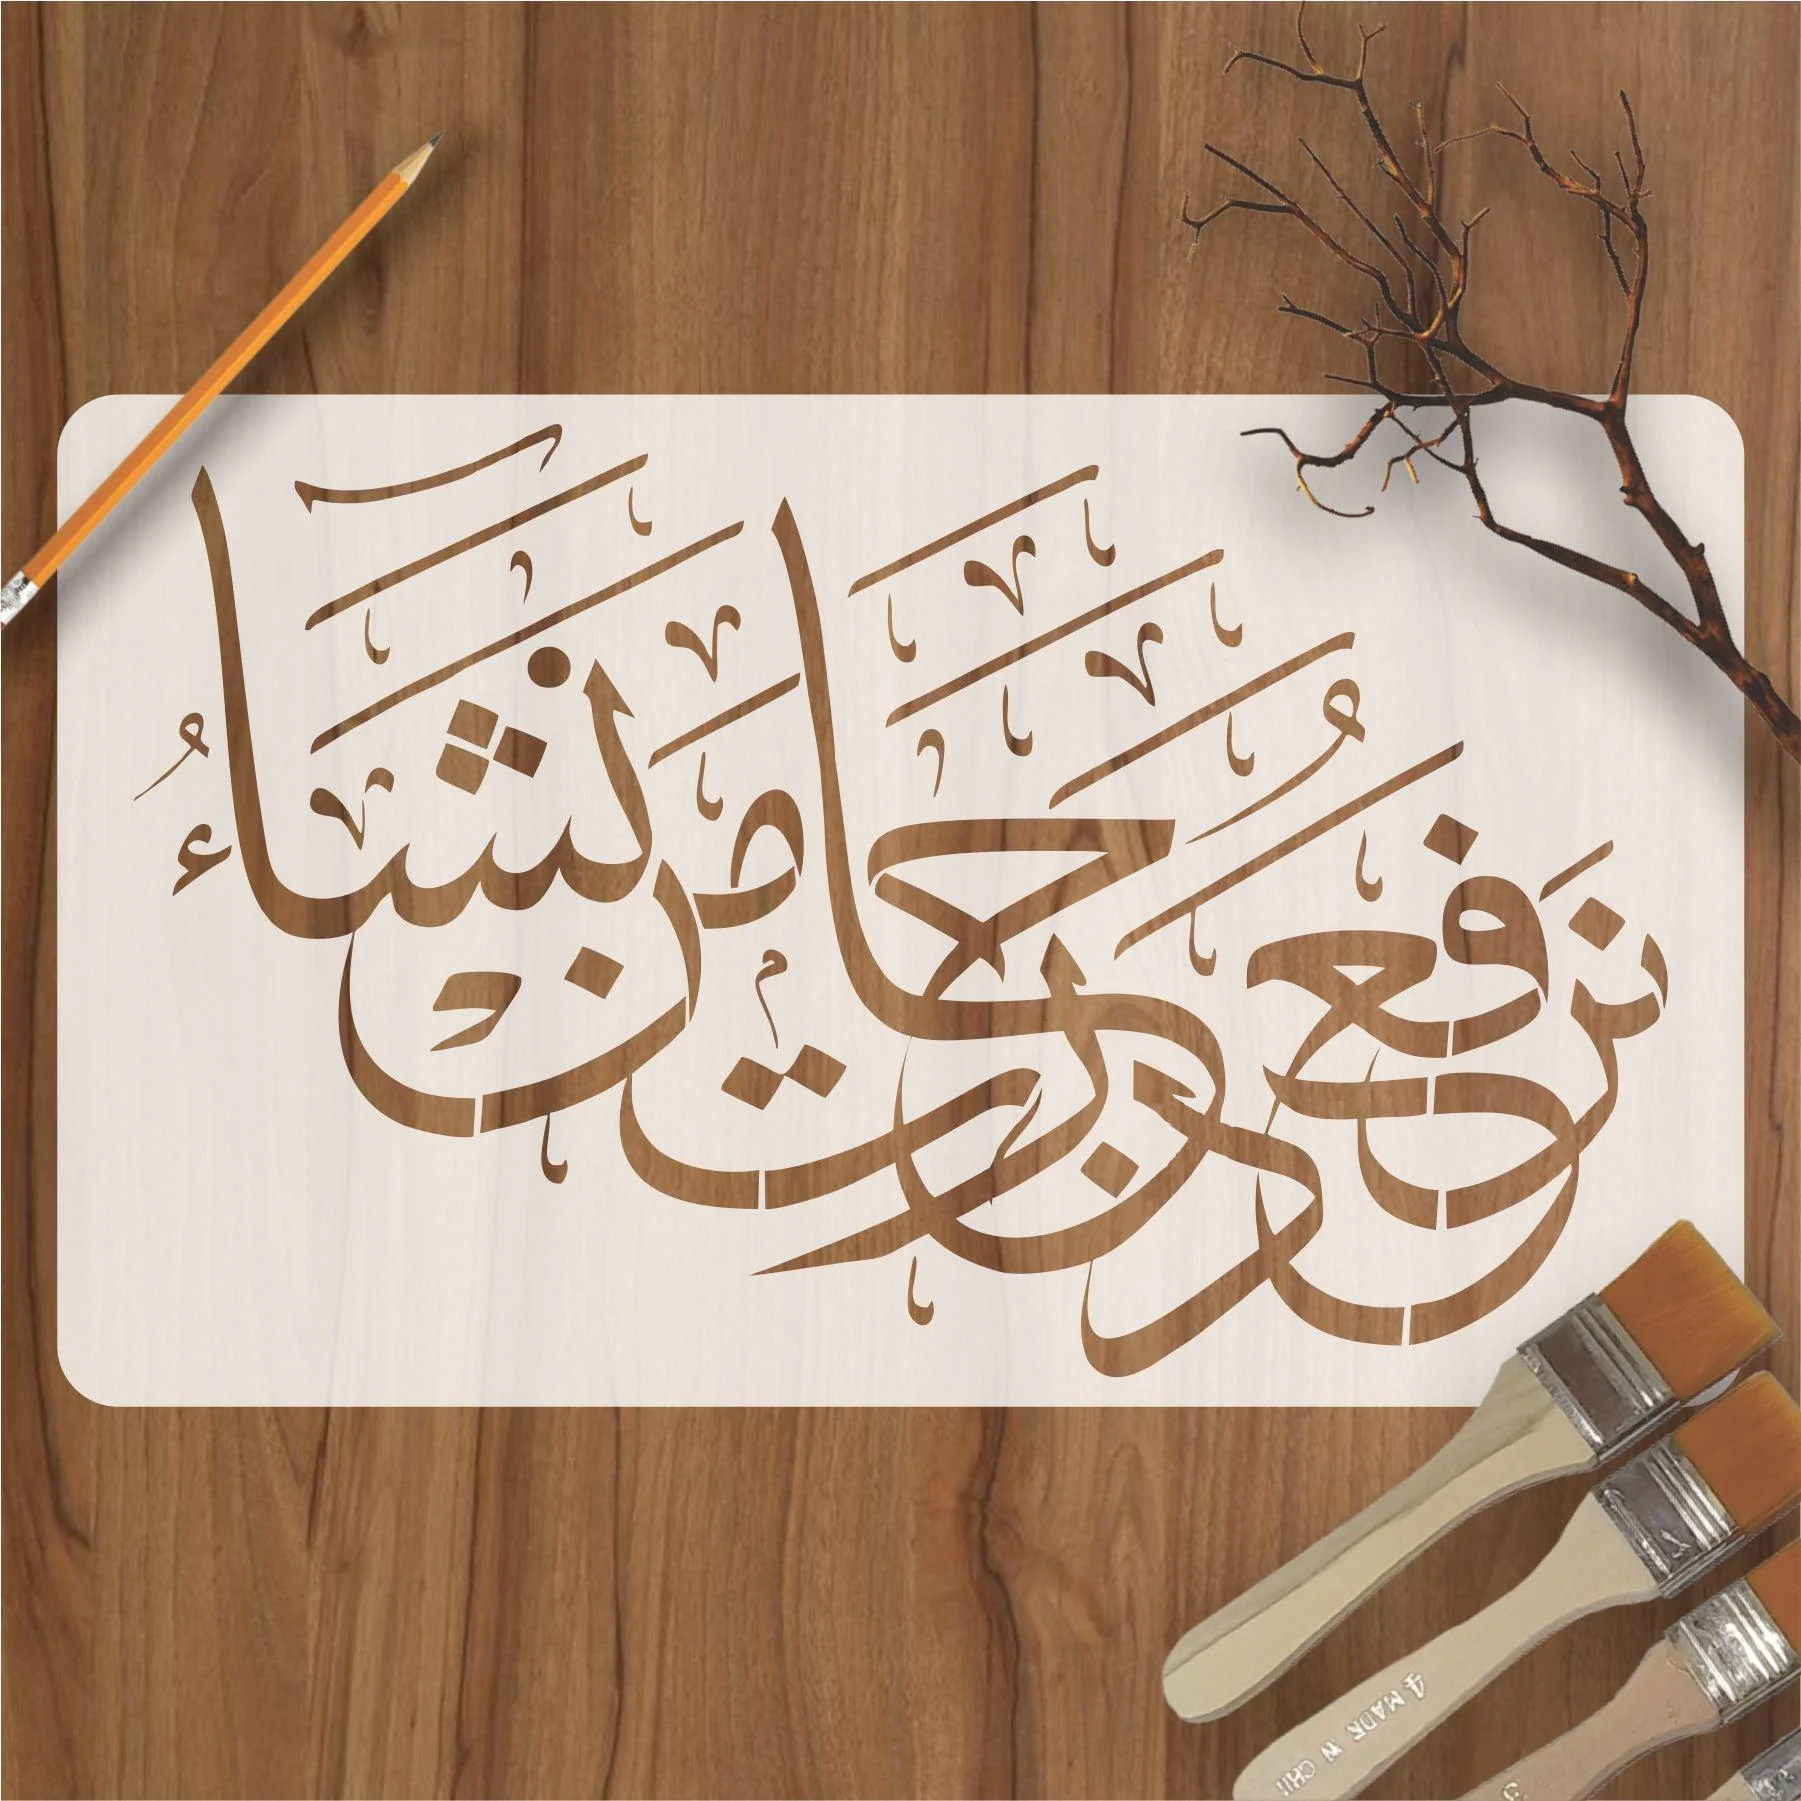 نَرْفَعُ دَرَجَاتٍ مَّن نَّشَآءُ
4 MADE IN CHI
3